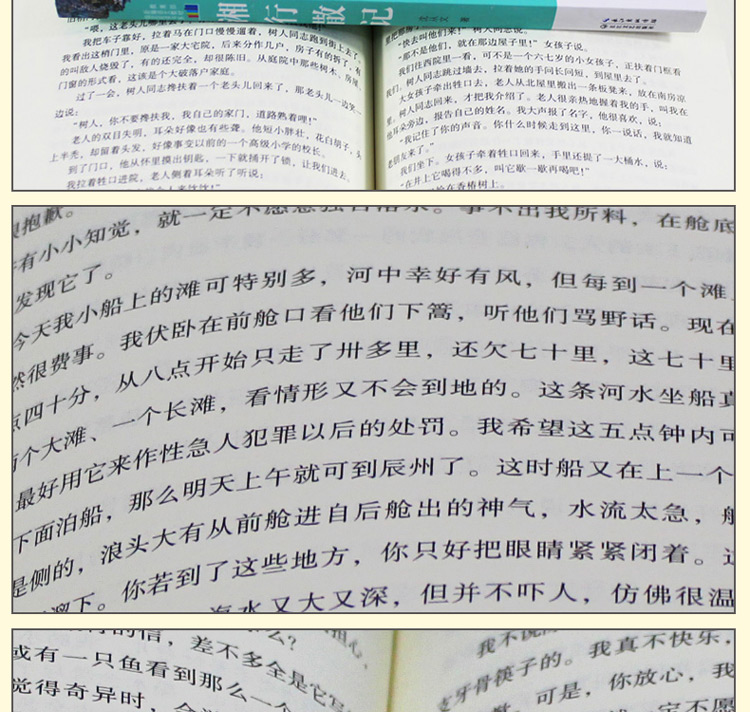 湘行散记
沈从文 著
"喂，这老头儿
我把车靠好，拉着马在门口慢慢遛着，树人同志跑到街上去了。
我看出这梢门里，原是一家大宅院，后来分作几户，房子有的拆了，有
的叫敌人烧毁了，有的还完全，却很陈旧。从庭院中那些树木、房屋、
门窗的形式看，这该是个大破落户家庭。
过了一会，树人同志搀扶着一个老头儿回来了，那老头儿一边笑一
边说：
"树人，你不要搀扶我，我自己的家门，道路熟着哩！"
老人的双目失明，耳朵好像也有些聋。他短小胖壮，花白胡子，头
上半秃，却留着头发，好像事变以前的一个高级小学的校长。
到了门口，他从怀里摸出钥匙，一下就捅开了锁，让我们进去。
我拉着牲口进院，老人侧着耳朵听了听说：
"快去叫他们来！"树人同志说。
"那不是他们，就在那边屋子里！"女孩子说。
我们往西院里一看，可不是一个六七岁的小女孩子，正扶着门框看
我们，树人同志跳过墙去，拉着她的手问长问短，到屋里去了。
大女孩子牵出牲口去，老人从北屋里搬出一条板凳来，放在南房凉
里，树人同志回来，才把我介绍了。老人很亲热地握着我的手，叫我在
他耳朵旁边，报告自己的姓名。我大声报了名字，他很喜欢，说：
"我记住了你的声音。你什么时候走到这里，你一说话，我就知道
老朋友来了。"
我们坐下。女孩子牵着牲口回来，手里还提了一大桶水，说：
"在井上它喝得不多，叫它歇一歇再喝吧！"
给在香椿树上。
抱歉。
有小小知觉，就一定不愿意独自落水。事不出我所料，在舱底
发现它了。
今天我小船上的滩可特别多，河中幸好有风，但每到一个滩
然很费事。我伏卧在前舱口看他们下篙，听他们骂野话。现在
点四十分，从八点开始只走了卅多里，还欠七十里，这七十里
个大滩、一个长滩，看情形又不会到地的。这条河水坐船真
最好用它来作性急人犯罪以后的处罚。我希望这五点钟内可
下面泊船，那么明天上午就可到辰州了。这时船又在上一个
是侧的，浪头大有从前舱进自后舱出的神气，水流太急，船
溜下。你若到了这些地方，你只好把眼睛紧紧闭着。这
海水又大又深，但并不吓人，仿佛很温
的信，差不多全是它写
或有一只鱼看到那么一个
觉得奇异时，会
我不说
支牙骨筷子的。我真不快乐，
可是，你放心，我
一定不愿